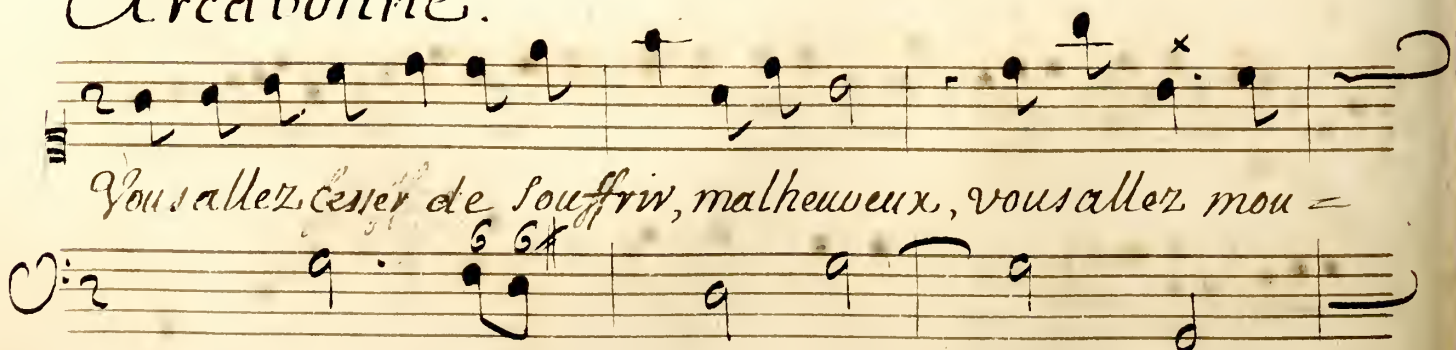 Arcabonne.
Vous allez cesser de souffrir, malheureux, vous allez mou =
6 6#